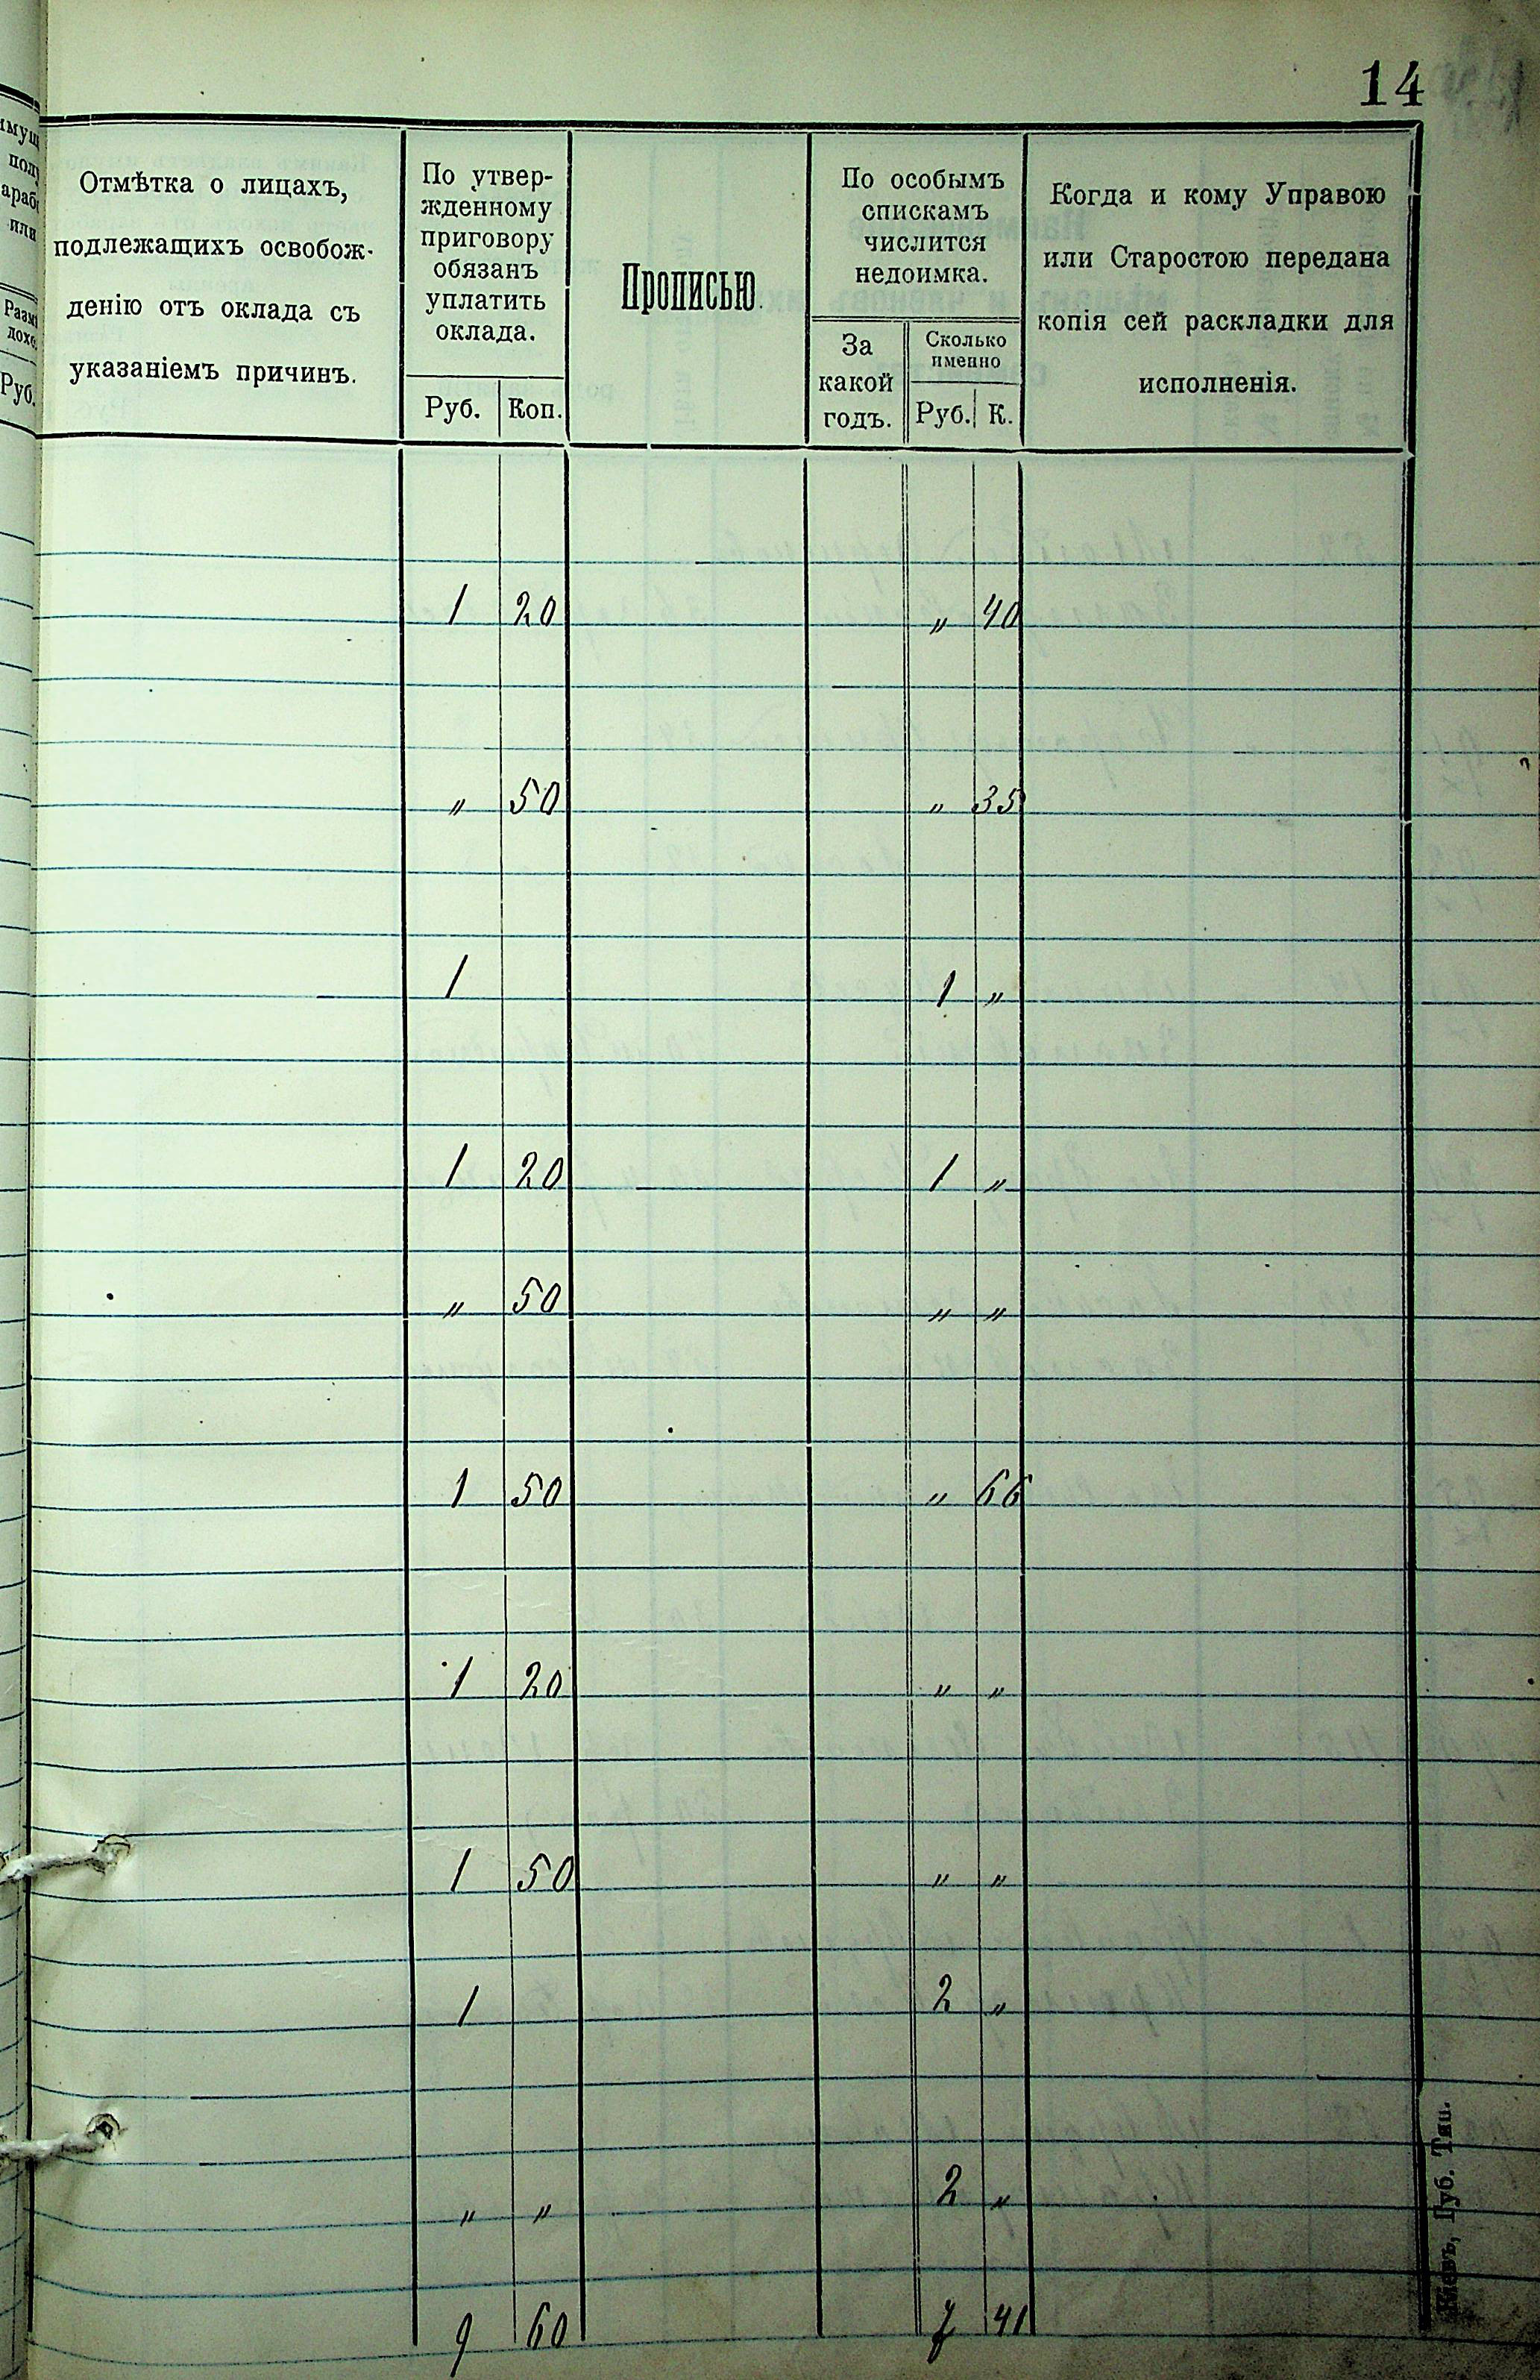 14
Отмѣтка о лицахъ,
подлежащихъ освобож-
денію отъ оклада съ
указаніемъ причинъ.
По утвер-
жденному
приговору
обязанъ
уплатить
оклада.
Руб. Коп.
Прописью.
По особымъ
спискамъ
числится
недоимка.
За
какой
годъ.
Сколько
именно
Руб. К.
Когда и кому Управою
или Старостою передана
копія сей раскладки для
исполненія.
Руб.
1 20 „ 40
„ 50 „ 35
1 1 „
1 20 1 „
„ 50 „ „
1 50 „ 66
1 20 „ „
1 50 „ „
1 2 „
„ „ 2 „
9 60 7 41
Кіевъ, Губ. Тип.